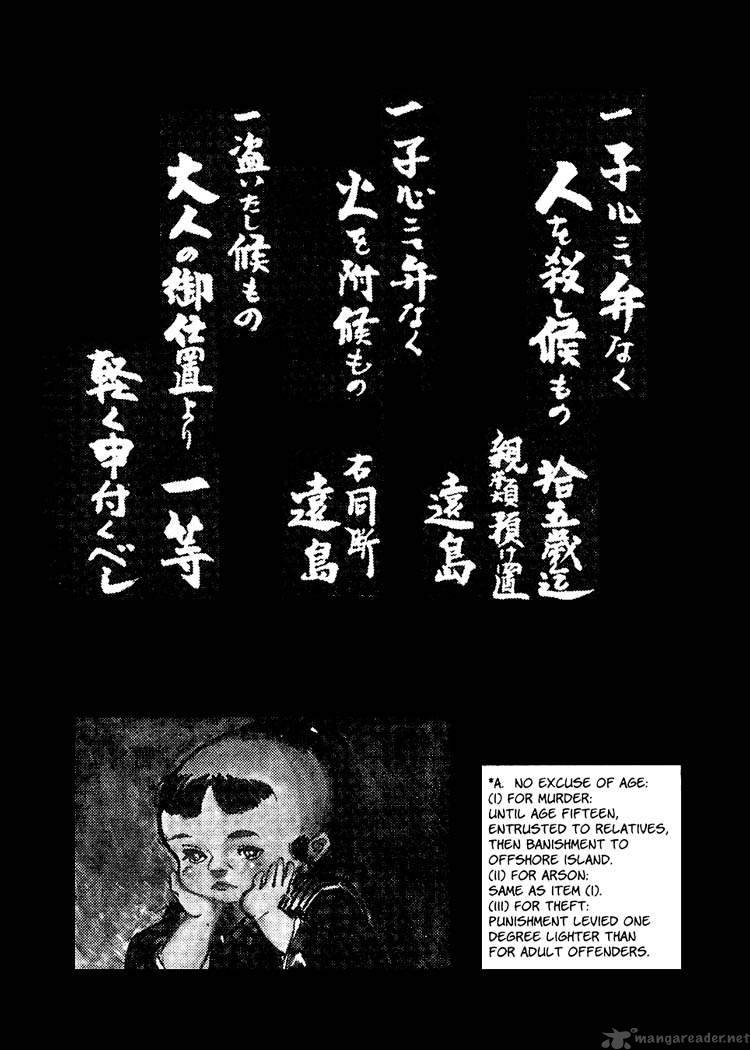 一子心ニ而弁なく
人を殺し候もの
拾五歳迄
親類預け置
遠島
一子心ニ而弁なく
火を附候もの
右同断
遠島
一盗いたし候もの
大人の御仕置より一等
軽く申付くべし
*A. NO EXCUSE OF AGE:
(I) FOR MURDER:
UNTIL AGE FIFTEEN,
ENTRUSTED TO RELATIVES,
THEN BANISHMENT TO
OFFSHORE ISLAND.
(II) FOR ARSON:
SAME AS ITEM (I).
(III) FOR THEFT:
PUNISHMENT LEVIED ONE
DEGREE LIGHTER THAN
FOR ADULT OFFENDERS.
mangareader.net